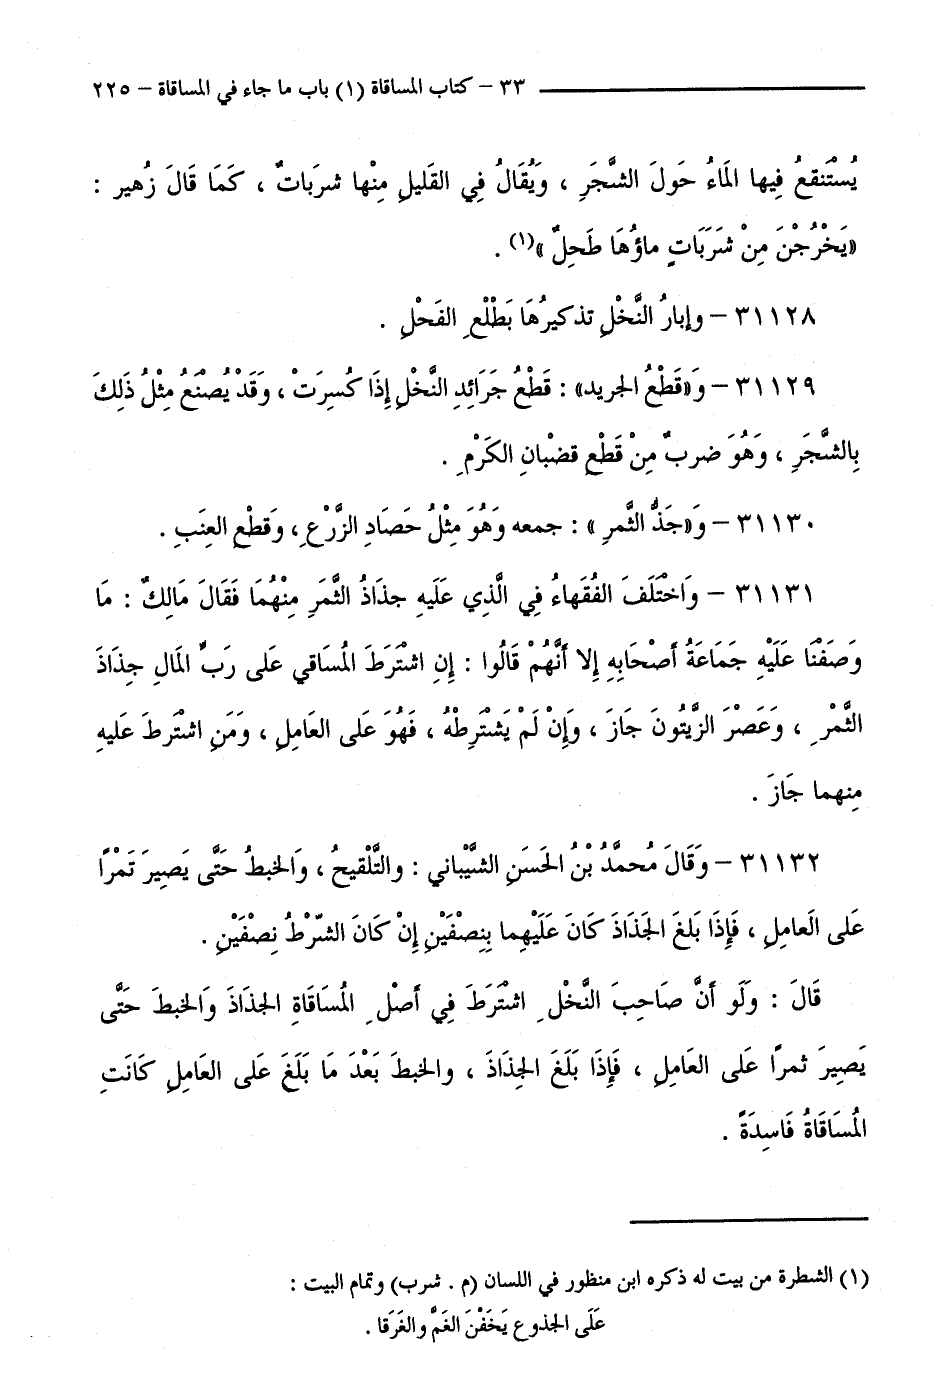 ٣٣ – كتاب المساقاة (١) باب ما جاء في المساقاة – ٢٢٥
يُسْتَنقعُ فِيها المَاءُ حَولَ الشَّجَرِ ، وَيُقَالُ فِي القَليلِ مِنْها شرَباتٌ ، كَمَا قَالَ زُهير :
«يَخْرُجْنَ مِنْ شَرَبَاتٍ ماؤُهَا طَحِلٌ»(١) .
٣١١٢٨ – وإبارُ النَّخْلِ تذكيرُهَا بَطْلْعِ الفَحْلِ .
٣١١٢٩ – وَ«قَطْعُ الجريد» : قَطْعُ جَرَائِدِ النَّخْلِ إِذَا كُسِرَتْ ، وَقَدْ يُصْنَعُ مِثْلُ ذَلِكَ
بِالشَّجَرِ ، وَهُوَ ضربٌ مِنْ قَطْعِ قضْبانِ الكَرْمِ .
٣١١٣٠ – وَ«جَذُّ الثَّمرِ » : جمعه وَهُوَ مِثْلُ حَصَادِ الزَّرْعِ، وَقطْعِ العِنَبِ .
٣١١٣١ – وَاخْتَلَفَ الفُقَهاءُ فِي الَّذِي عَلَيهِ جذَاذُ الثمَرِ مِنْهُمَا فَقَالَ مَالِكٌ : مَا
وَصَفْنَا عَلَيْهِ جَمَاعَةُ أَصْحَابِهِ إِلا أَنَّهُمْ قَالُوا : إِنِ اشْتَرَطَ المُسَاقي عَلى رَبِّ المَالِ جِذَاذَ
الثَّمْرِ ، وَعَصْرَ الزَّيتُونَ جَازَ ، وَإِنْ لَمْ يَشْتَرِطْهُ ، فَهُوَ عَلى العَامِلِ ، وَمَنِ اشْترطَ عَليهِ
مِنهما جَازَ .
٣١١٣٢ – وَقَالَ مُحمَّدُ بْنُ الحَسَنِ الشيَّباني : والتَّلْقيحُ ، وَالحَبطُ حَتَّى يَصِيرَ تَمْرًا
عَلى العامِلِ ، فَإِذَا بَلغَ الجَذَاذَ كَانَ عَلَيْهِما بِنِصْفَيْنِ إِنْ كَانَ الشّرْطُ نِصْفَيْنِ .
قَالَ : وَلَو أَنَّ صَاحِبَ النَّخْلِ اشْتَرَطَ فِي أَصْلِ المُسَاقَاةِ الجذاذَ وَالحبطَ حَتَّى
يَصِيرَ ثمرًا عَلى العَامِلِ ، فَإِذَا بَلَغَ الجِذَاذَ ، والحبطَ بَعْدَ مَا بَلَغَ عَلى العَامِلِ كَانَتِ
المُسَاقَاةُ فَاسِدَةً .
(١) الشطرة من بيت له ذكره ابن منظور في اللسان (م . شرب) وتمام البيت :
عَلَى الجذوع يَخَفْنَ الغَمَّ والغَرَقا .